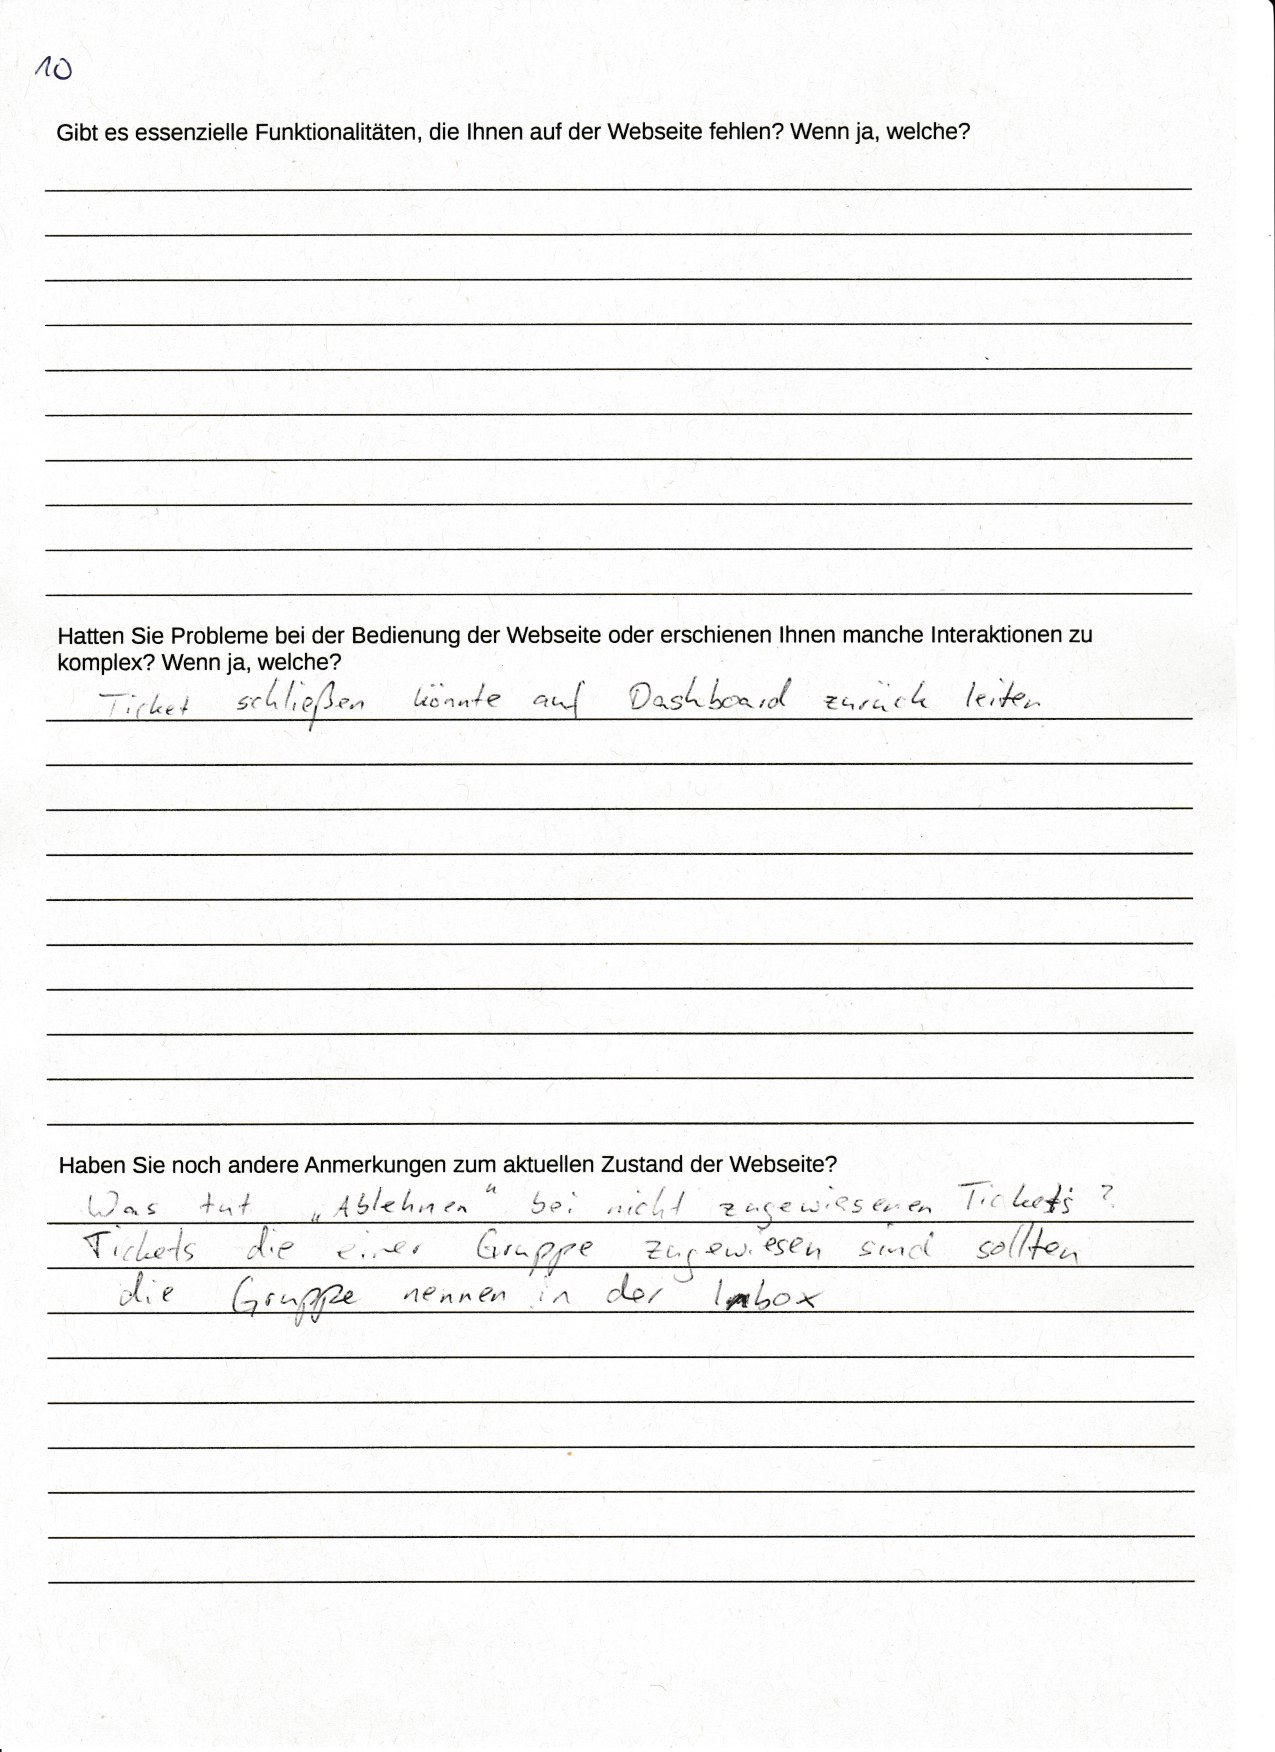 10
Gibt es essenzielle Funktionalitäten, die Ihnen auf der Webseite fehlen? Wenn ja, welche?
Hatten Sie Probleme bei der Bedienung der Webseite oder erschienen Ihnen manche Interaktionen zu
komplex? Wenn ja, welche?
Ticket schließen könnte auf Dashboard zurück leiten
Haben Sie noch andere Anmerkungen zum aktuellen Zustand der Webseite?
Was tut „Ablehnen“ bei nicht zugewiesenen Tickets?
Tickets die einer Gruppe zugewiesen sind sollten
die Gruppe nennen in der Inbox